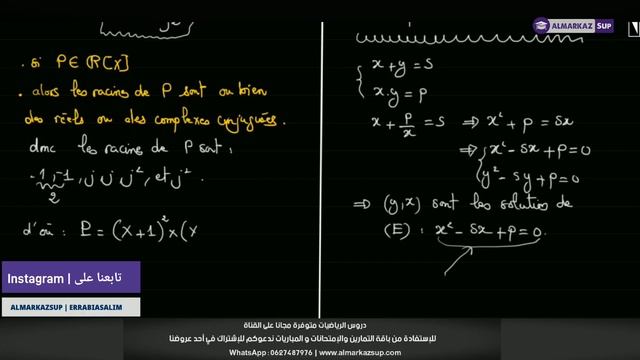 ALMARKAZ SUP
. si P ∈ ℝ[X]
. alors les racines de P sont ou bien
des réels ou des complexes conjuguées.
donc les racines de P sont :
-1, -1, j, j, j², et j²
2
d'où : P = (X+1)² x (X
x + y = S
x . y = p
x + p/x = S ⇒ x² + p = Sx
⇒ x² - Sx + p = 0
y² - Sy + p = 0
⇒ (y, x) sont les solutions de
(E) : x² - Sx + p = 0.
Instagram | تابعنا على
ALMARKAZSUP | ERRABIASALIM
دروس الرياضيات متوفرة مجانا على القناة
للإستفادة من باقة التمارين والإمتحانات و المباريات ندعوكم للإشتراك في أحد عروضنا
WhatsApp : 0627487976 | www.almarkazsup.com